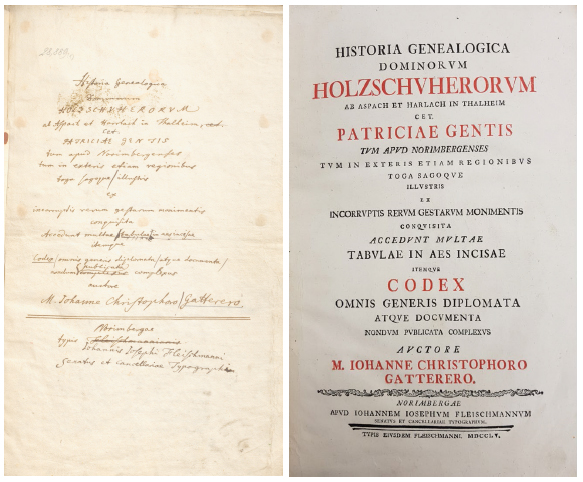 Historia Genealogica
Dominorum
HOLZSCHUHERORUM
ab Aspach et Harlach in Thalheim, cet.
PATRICIAE GENTIS
tum apud Norimbergenses
tum in exteris etiam regionibus
toga sagoque illustris
ex
incorruptis rerum gestarum monimentis
conquisita
Accedunt multae tabulae
itemque
Codex omnis generis diplomata atque documenta
nondum publicata complexus
auctore
M. Iohanne Christophoro Gatterero.
Norimbergae
typis
Iohannis Josephi Fleischmanni
Senatus et Cancellariae Typographi
HISTORIA GENEALOGICA
DOMINORVM
HOLZSCHVHERORVM
AB ASPACH ET HARLACH IN THALHEIM
CET.
PATRICIAE GENTIS
TVM APVD NORIMBERGENSES
TVM IN EXTERIS ETIAM REGIONIBVS
TOGA SAGOQVE
ILLVSTRIS
EX
INCORRVPTIS RERVM GESTARVM MONIMENTIS
CONQVISITA
ACCEDVNT MVLTAE
TABVLAE IN AES INCISAE
ITEMQVE
CODEX
OMNIS GENERIS DIPLOMATA
ATQVE DOCVMENTA
NONDVM PVBLICATA COMPLEXVS
AVCTORE
M. IOHANNE CHRISTOPHORO
GATTERERO.
NORIMBERGAE
APVD IOHANNEM IOSEPHVM FLEISCHMANNVM
SENATVS ET CANCELLARIAE TYPOGRAPHVM.
TYPIS EIVSDEM FLEISCHMANNI. MDCCLV.